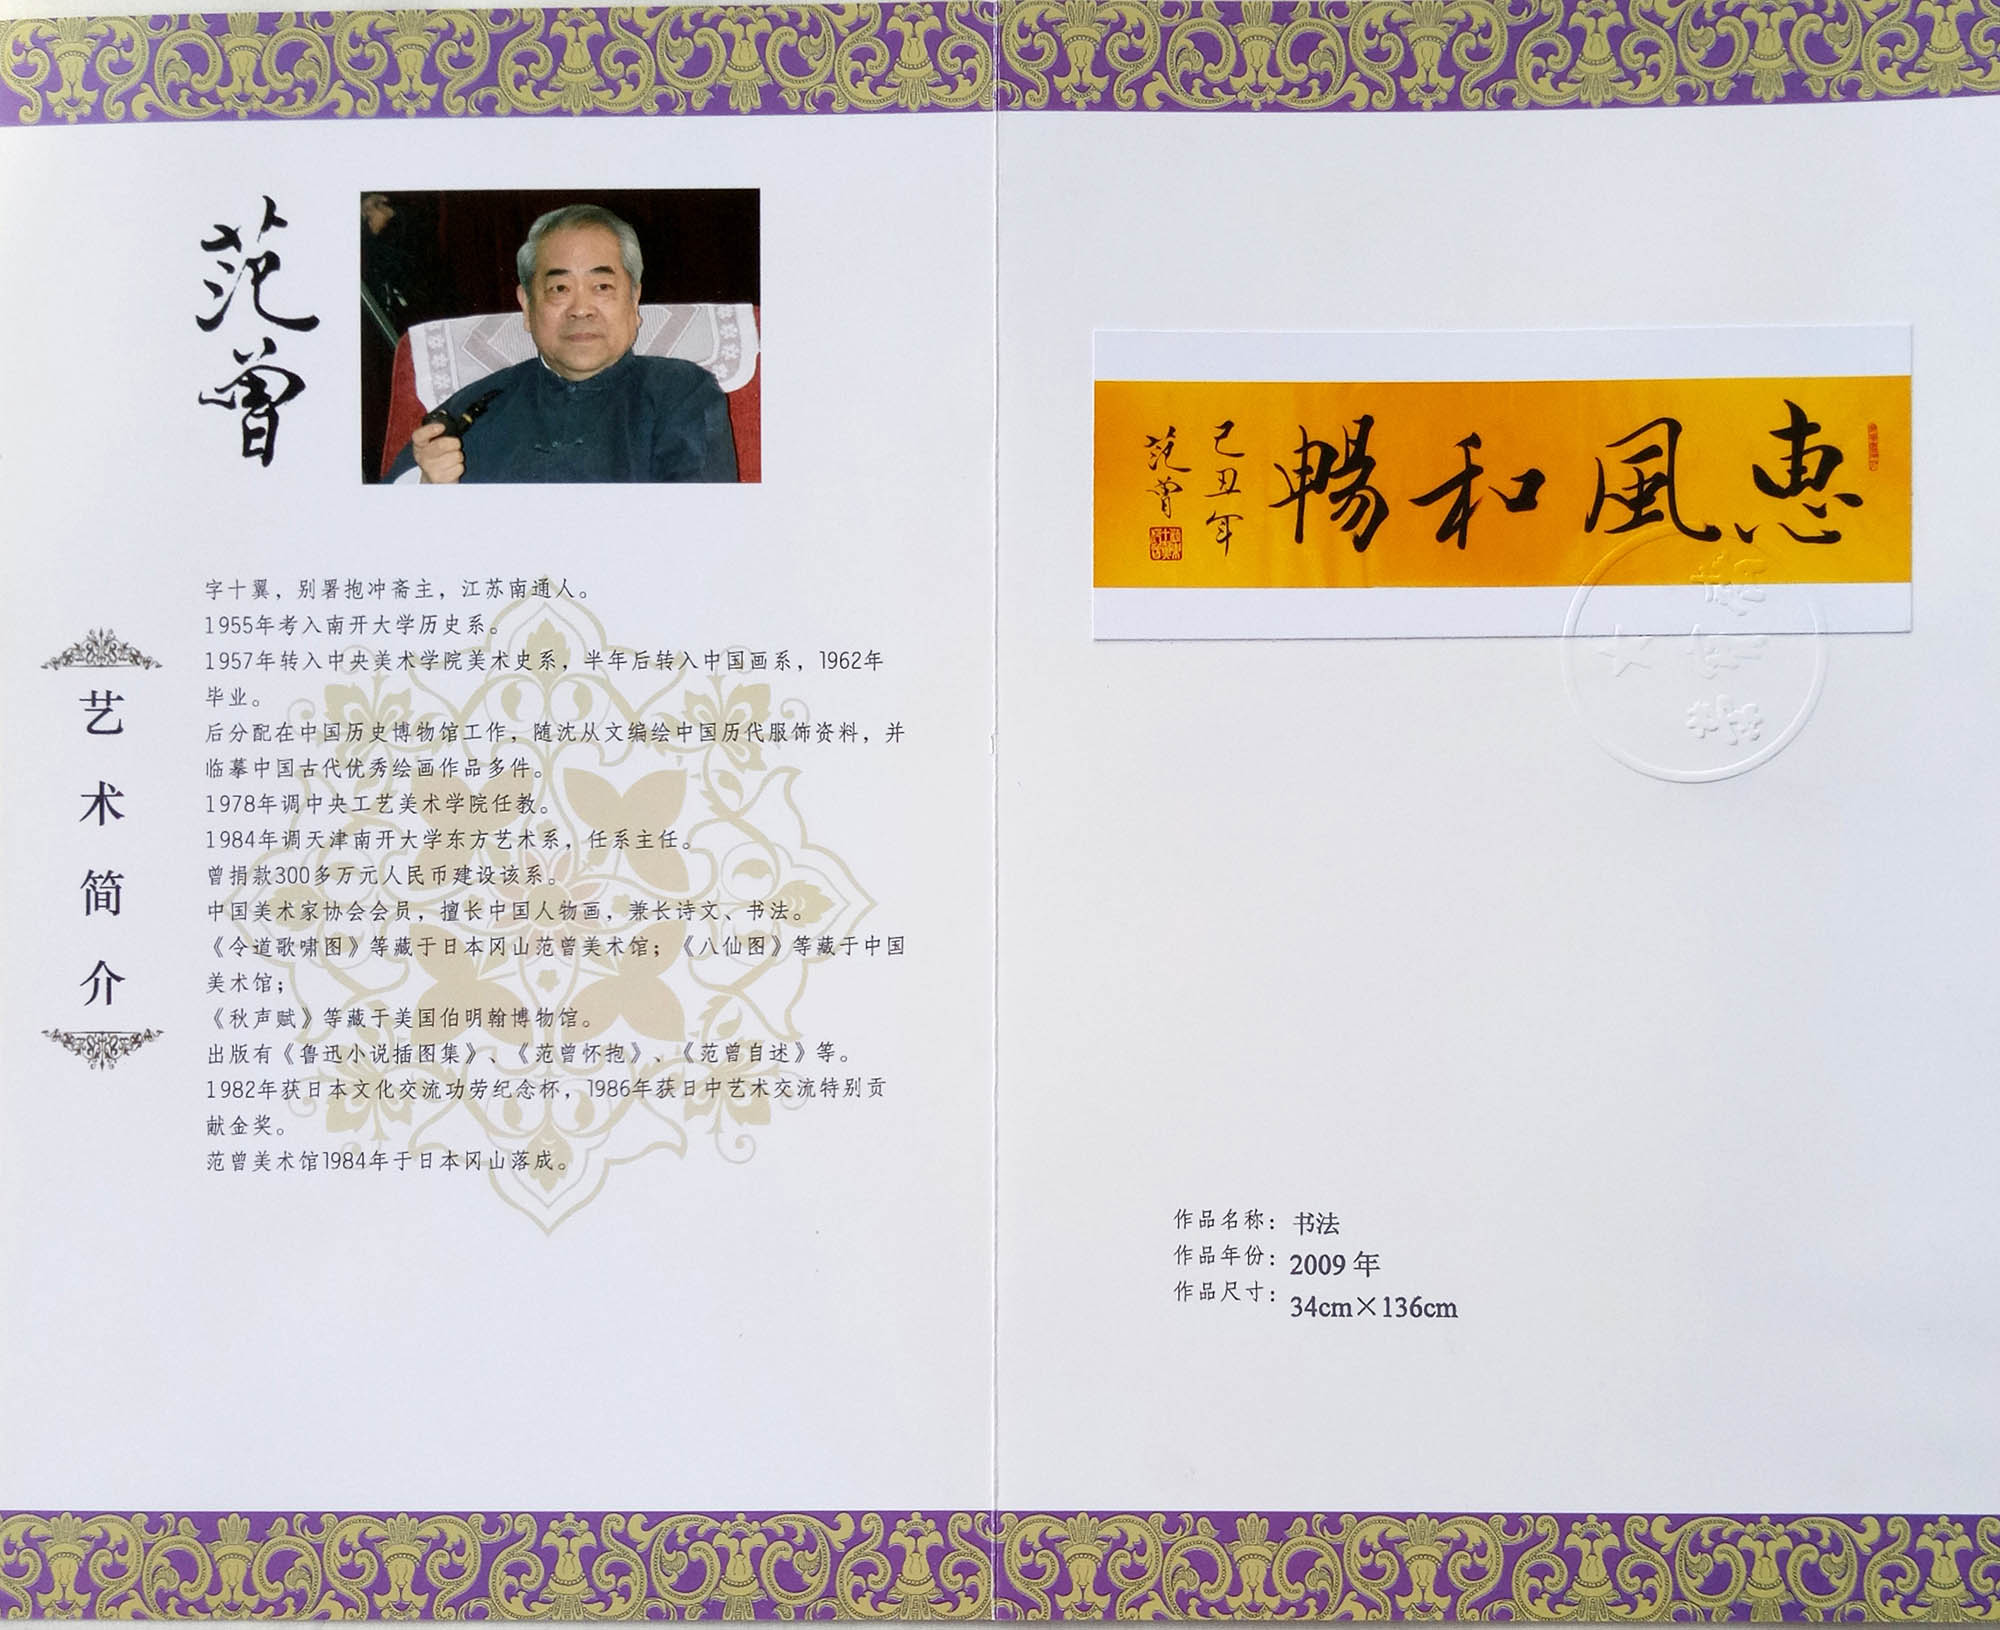 范曾
艺术简介
字十翼，别署抱冲斋主，江苏南通人。
1955年考入南开大学历史系。
1957年转入中央美术学院美术史系，半年后转入中国画系，1962年
毕业。
后分配在中国历史博物馆工作，随沈从文编绘中国历代服饰资料，并
临摹中国古代优秀绘画作品多件。
1978年调中央工艺美术学院任教。
1984年调天津南开大学东方艺术系，任系主任。
曾捐款300多万元人民币建设该系。
中国美术家协会会员，擅长中国人物画，兼长诗文、书法。
《令道歌啸图》等藏于日本冈山范曾美术馆；《八仙图》等藏于中国
美术馆；
《秋声赋》等藏于美国伯明翰博物馆。
出版有《鲁迅小说插图集》、《范曾怀抱》、《范曾自述》等。
1982年获日本文化交流功劳纪念杯，1986年获日中艺术交流特别贡
献金奖。
范曾美术馆1984年于日本冈山落成。
惠風和暢
己丑年
范曾
作品名称：书法
作品年份：2009 年
作品尺寸：34cm×136cm